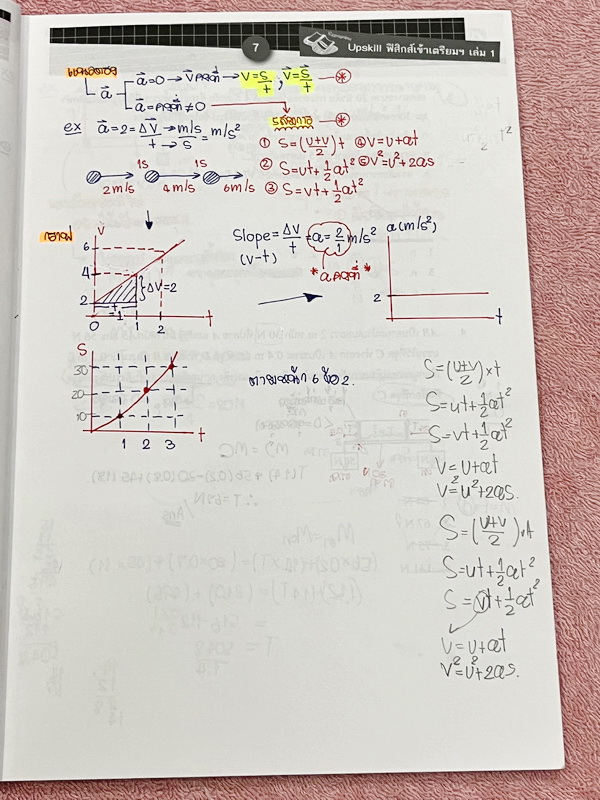 7 Upskill ฟิสิกส์เข้าเตรียมฯ เล่ม 1
a⃗=0 → V⃗ คงที่ → V=S/t , V⃗=S⃗/t
a⃗
a⃗=คงที่ ≠0
5 สมการ
ex a⃗=2=ΔV⃗/t → m/s / → s = m/s²
① S=(u+v/2)t ④ V=u+at
② S=ut+1/2at² ⑤ V²=u²+2as
③ S=vt+1/2at²
1s 1s
2 m/s 4 m/s 6 m/s
กราฟ
V
6
4
2
ΔV=2
t=1
0 1 2 t
Slope=ΔV/t=a=2/1 m/s²
(v-t)
*a คงที่*
a(m/s²)
2
t
S
30
20
10
1 2 3 t
ตามหน้า 6 ข้อ 2.
S=(u+v/2)×t
S=ut+1/2at²
S=vt+1/2at²
V=u+at
V²=u²+2as.
S=(u+v/2)×t
S=ut+1/2at²
S=vt+1/2at²
V=u+at
V²=u²+2as.